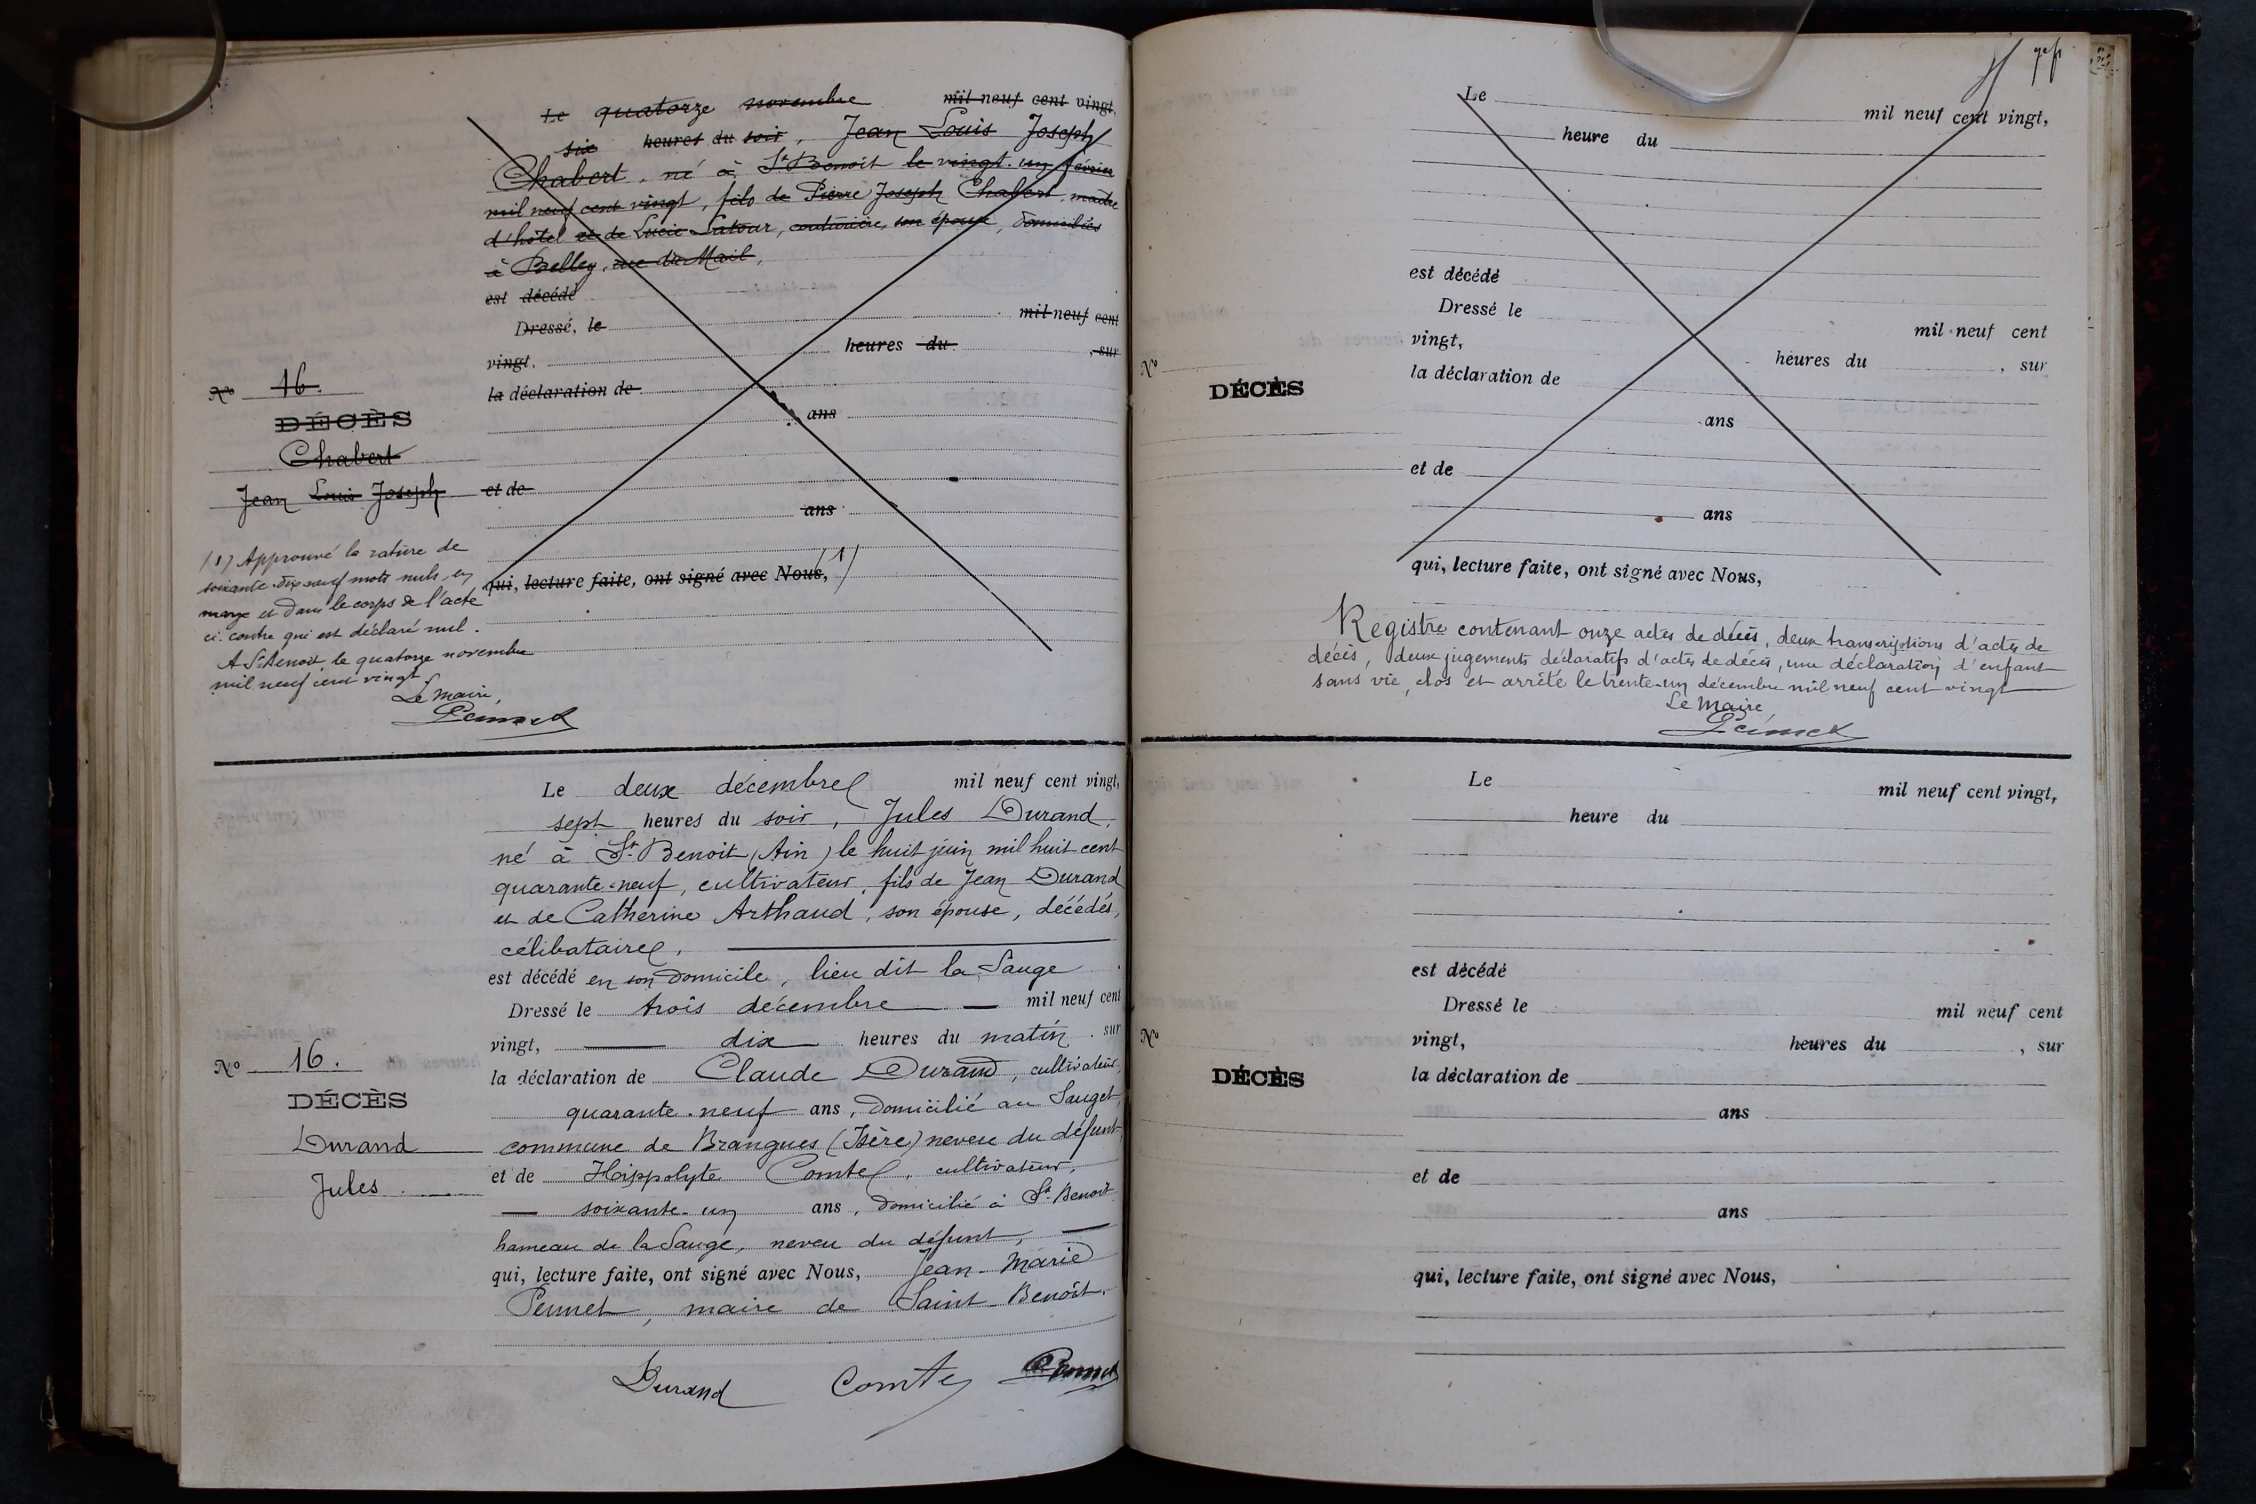 Le quatorze novembre mil neuf cent vingt,
six heures du soir, Jean Louis Joseph
Chabert, né à St Benoit le vingt-un février
mil neuf cent vingt, fils de Pierre Joseph Chabert, maître
d'hôtel et de Lucie Latour, couturière, son épouse, domiciliés
à Belley, rue du Mail,
est décédé
Dressé, le mil neuf cent
vingt, heures du , sur
la déclaration de
ans
et de
ans
qui, lecture faite, ont signé avec Nous, (1)
No 16.
DÉCÈS
Chabert
Jean Louis Joseph
(1) Approuvé la rature de
soixante-dix neuf mots nuls, en
marge et dans le corps de l'acte
ci-contre qui est déclaré nul.
A St Benoit, le quatorze novembre
mil neuf cent vingt.
Le Maire,
Pennet
Le deux décembre mil neuf cent vingt,
sept heures du soir, Jules Durand,
né à St Benoit (Ain) le huit juin mil huit cent
quarante-neuf, cultivateur, fils de Jean Durand
et de Catherine Arthaud, son épouse, décédés,
célibataire,
est décédé en son domicile, lieu dit la Sauge
Dressé le trois décembre mil neuf cent
vingt, dix heures du matin, sur
la déclaration de Claude Durand, cultivateur,
quarante-neuf ans, domicilié au Sauget,
commune de Brangues (Isère) neveu du défunt,
et de Hippolyte Comte, cultivateur,
soixante-un ans, domicilié à St Benoit
hameau de la Sauge, neveu du défunt,
qui, lecture faite, ont signé avec Nous, Jean-Marie
Pennet, maire de Saint-Benoît.
Durand Comte Pennet
No 16.
DÉCÈS
Durand
Jules
Le mil neuf cent vingt,
heure du
est décédé
Dressé le mil neuf cent
vingt, heures du , sur
la déclaration de
ans
et de
ans
qui, lecture faite, ont signé avec Nous,
No
DÉCÈS
Registre contenant onze actes de décès, deux transcriptions d'actes de
décès, deux jugements déclaratifs d'actes de décès, une déclaration d'enfant
sans vie, clos et arrêté le trente-un décembre mil neuf cent vingt
Le Maire,
Pennet
Le mil neuf cent vingt,
heure du
est décédé
Dressé le mil neuf cent
vingt, heures du , sur
la déclaration de
ans
et de
ans
qui, lecture faite, ont signé avec Nous,
No
DÉCÈS